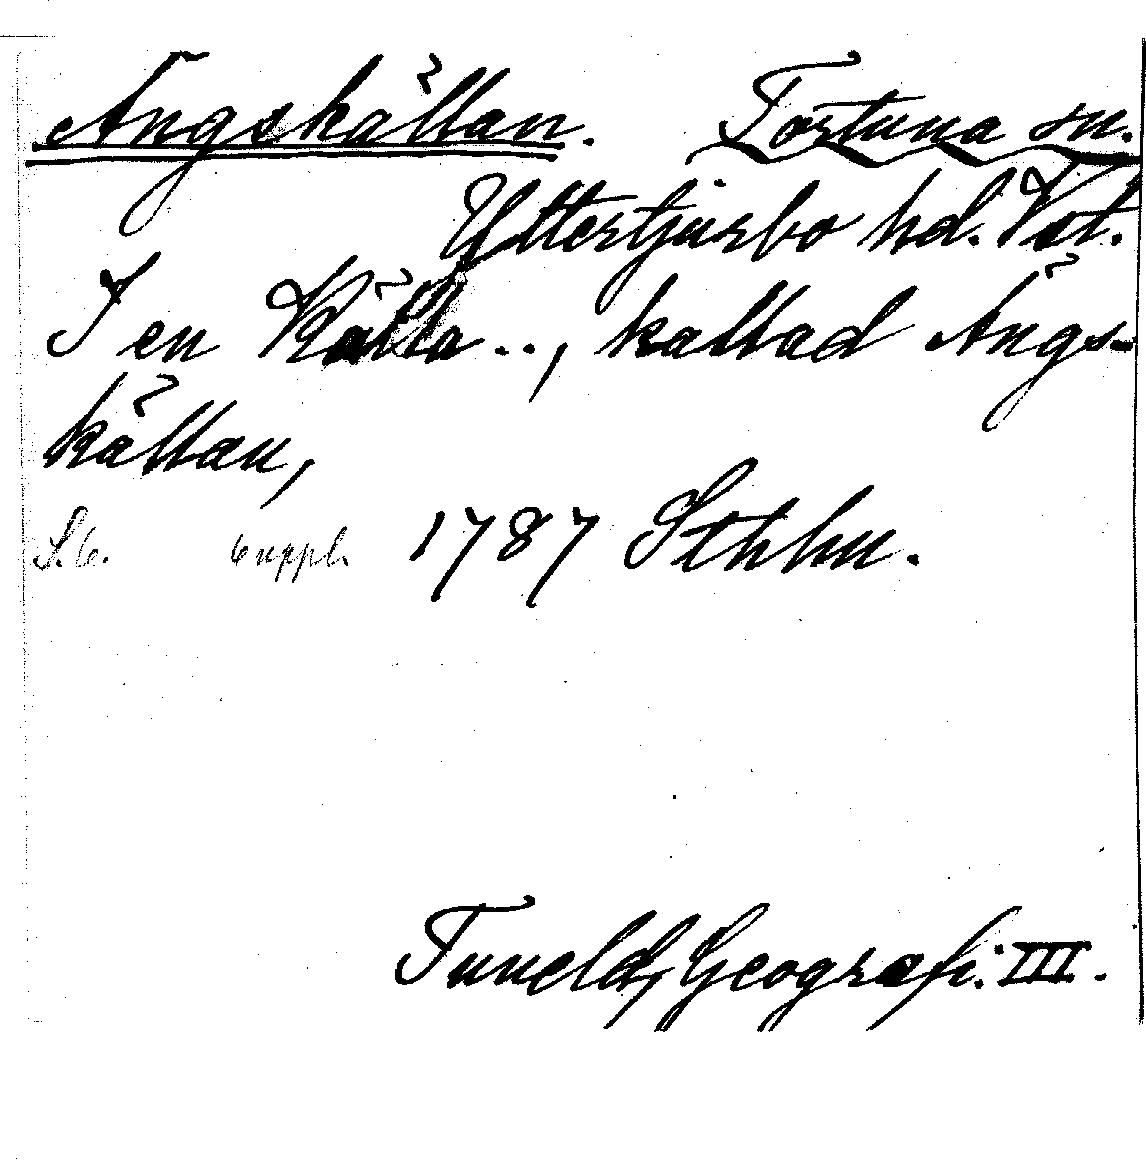 Ängskällan. Tortuna sn.
Yttertjurbo hd. Vst.
I en Källa .., kallad Ängs-
källan,
S. 6. 6 uppl. 1787 Sthhu.
Tuneld, Geografi. III.